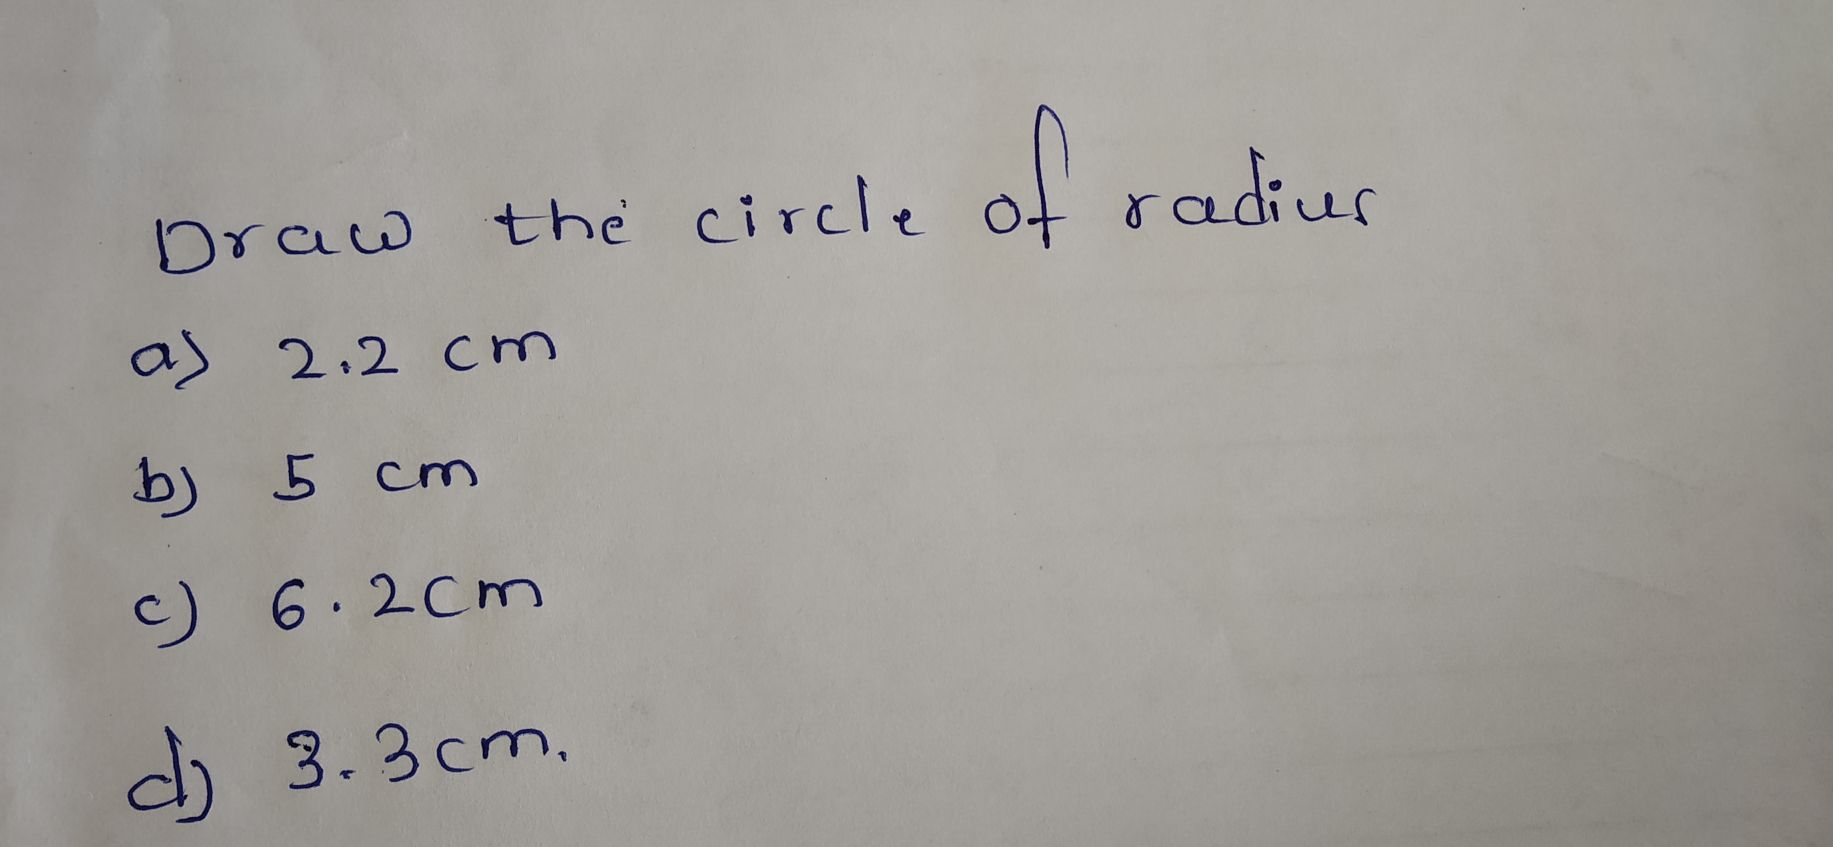 Draw the circle of radius
a) 2.2 cm
b) 5 cm
c) 6.2cm
d) 3.3cm.